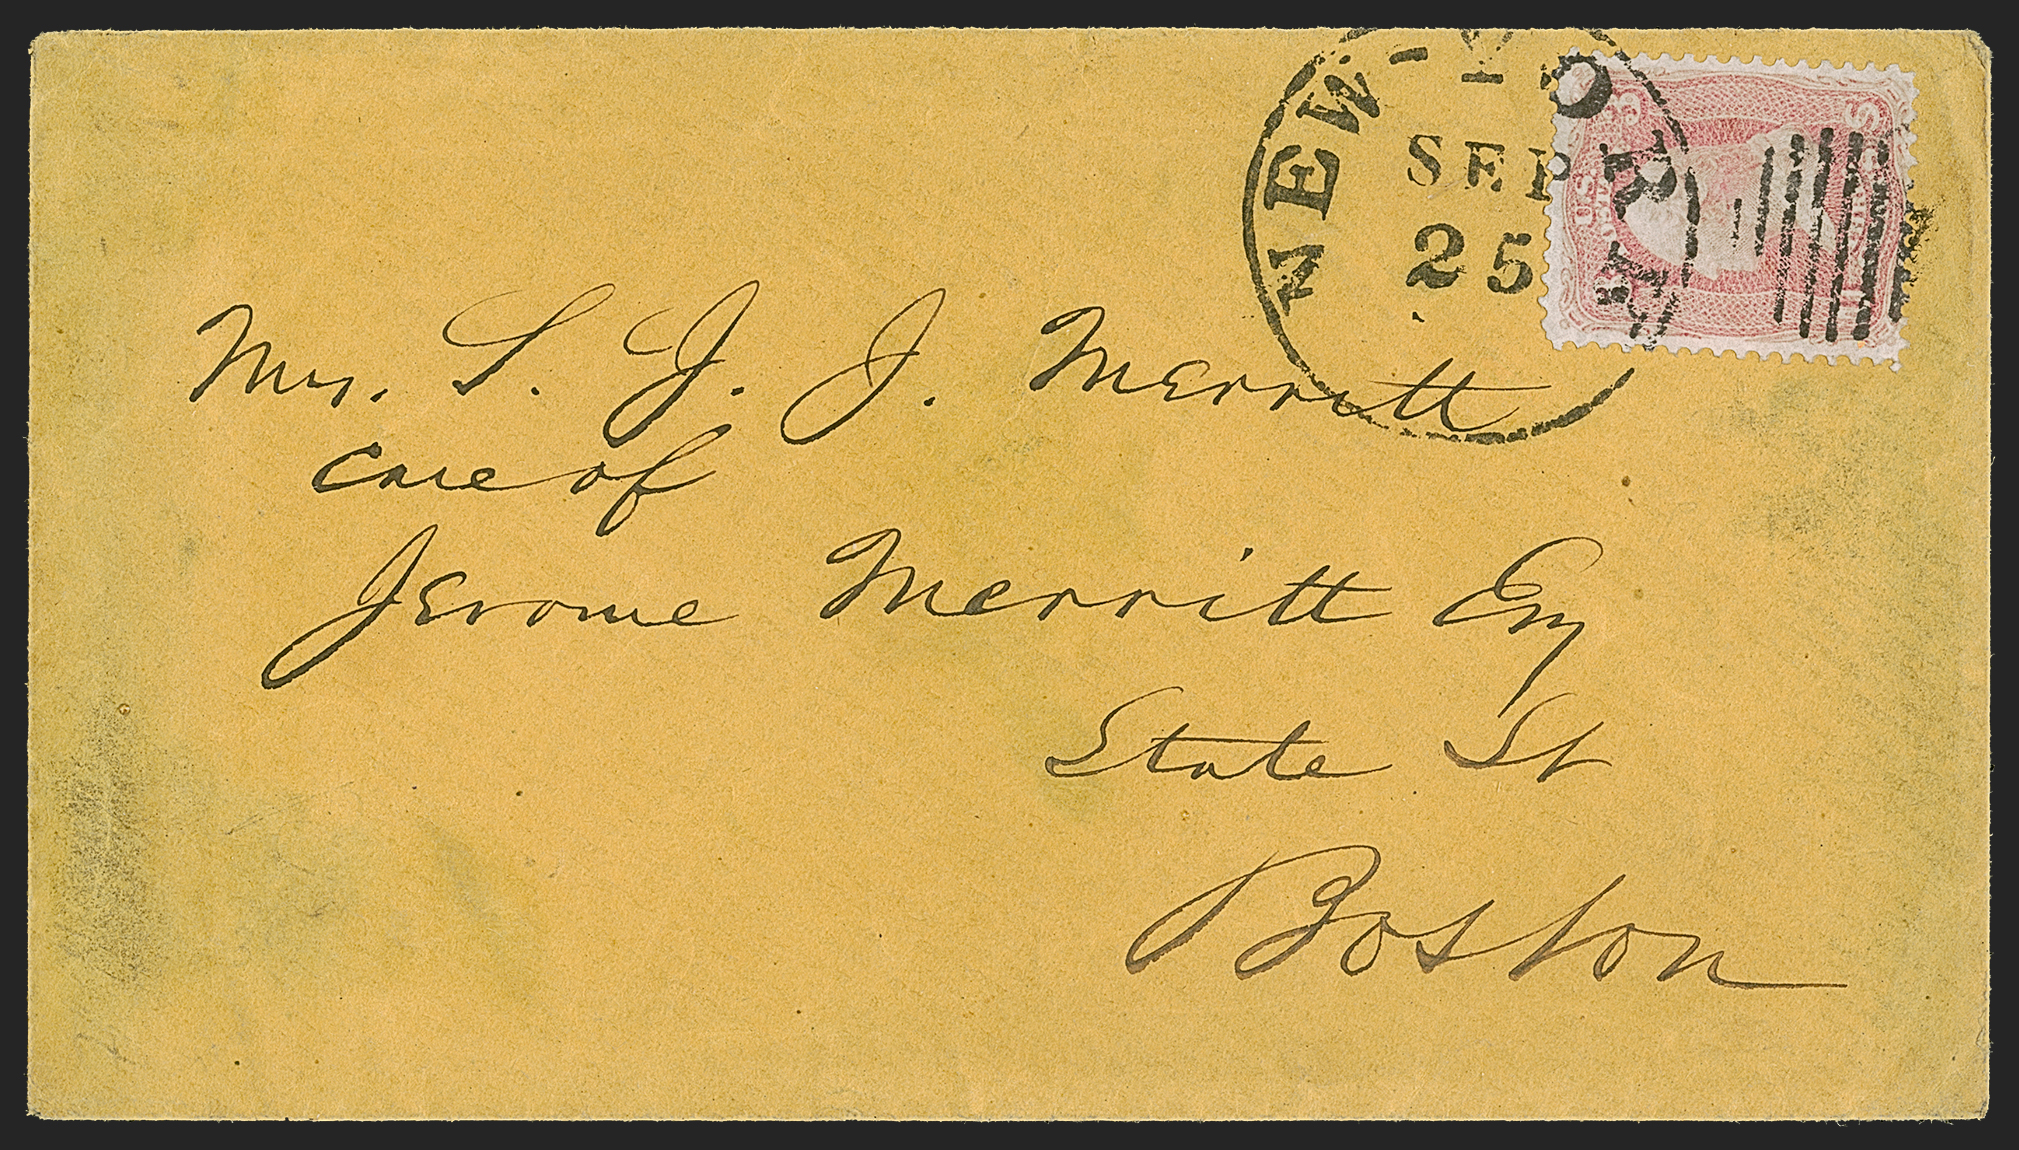 NEW-YORK
SEP
25
3 U.S. S
Mrs. S. J. J. Merritt
care of
Jerome Merritt Esq
State St
Boston